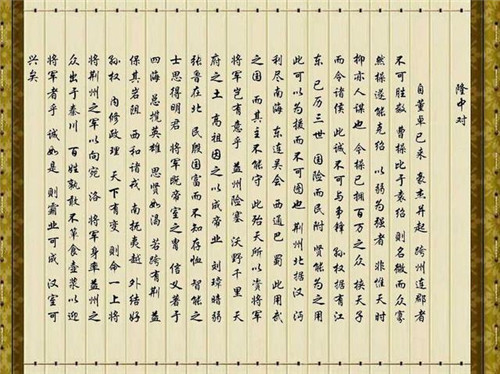 隆中对
自董卓已来 豪杰并起 跨州连郡者
不可胜数 曹操比于袁绍 则名微而众寡
然操遂能克绍 以弱为强者 非惟天时
抑亦人谋也 今操已拥百万之众 挟天子
而令诸侯 此诚不可与争锋 孙权据有江
东 已历三世 国险而民附 贤能为之用
此可以为援而不可图也 荆州北据汉 沔
利尽南海 东连吴会 西通巴蜀 此用武
之国 而其主不能守 此殆天所以资将军
将军岂有意乎 益州险塞 沃野千里 天
府之土 高祖因之以成帝业 刘璋暗弱
张鲁在北 民殷国富而不知存恤 智能之
士思得明君 将军既帝室之胄 信义著于
四海 总揽英雄 思贤如渴 若跨有荆 益
保其岩阻 西和诸戎 南抚夷越 外结好
孙权 内修政理 天下有变 则命一上将
将荆州之军以向宛 洛 将军身率益州之
众出于秦川 百姓孰敢不箪食壶浆以迎
将军者乎 诚如是 则霸业可成 汉室可
兴矣